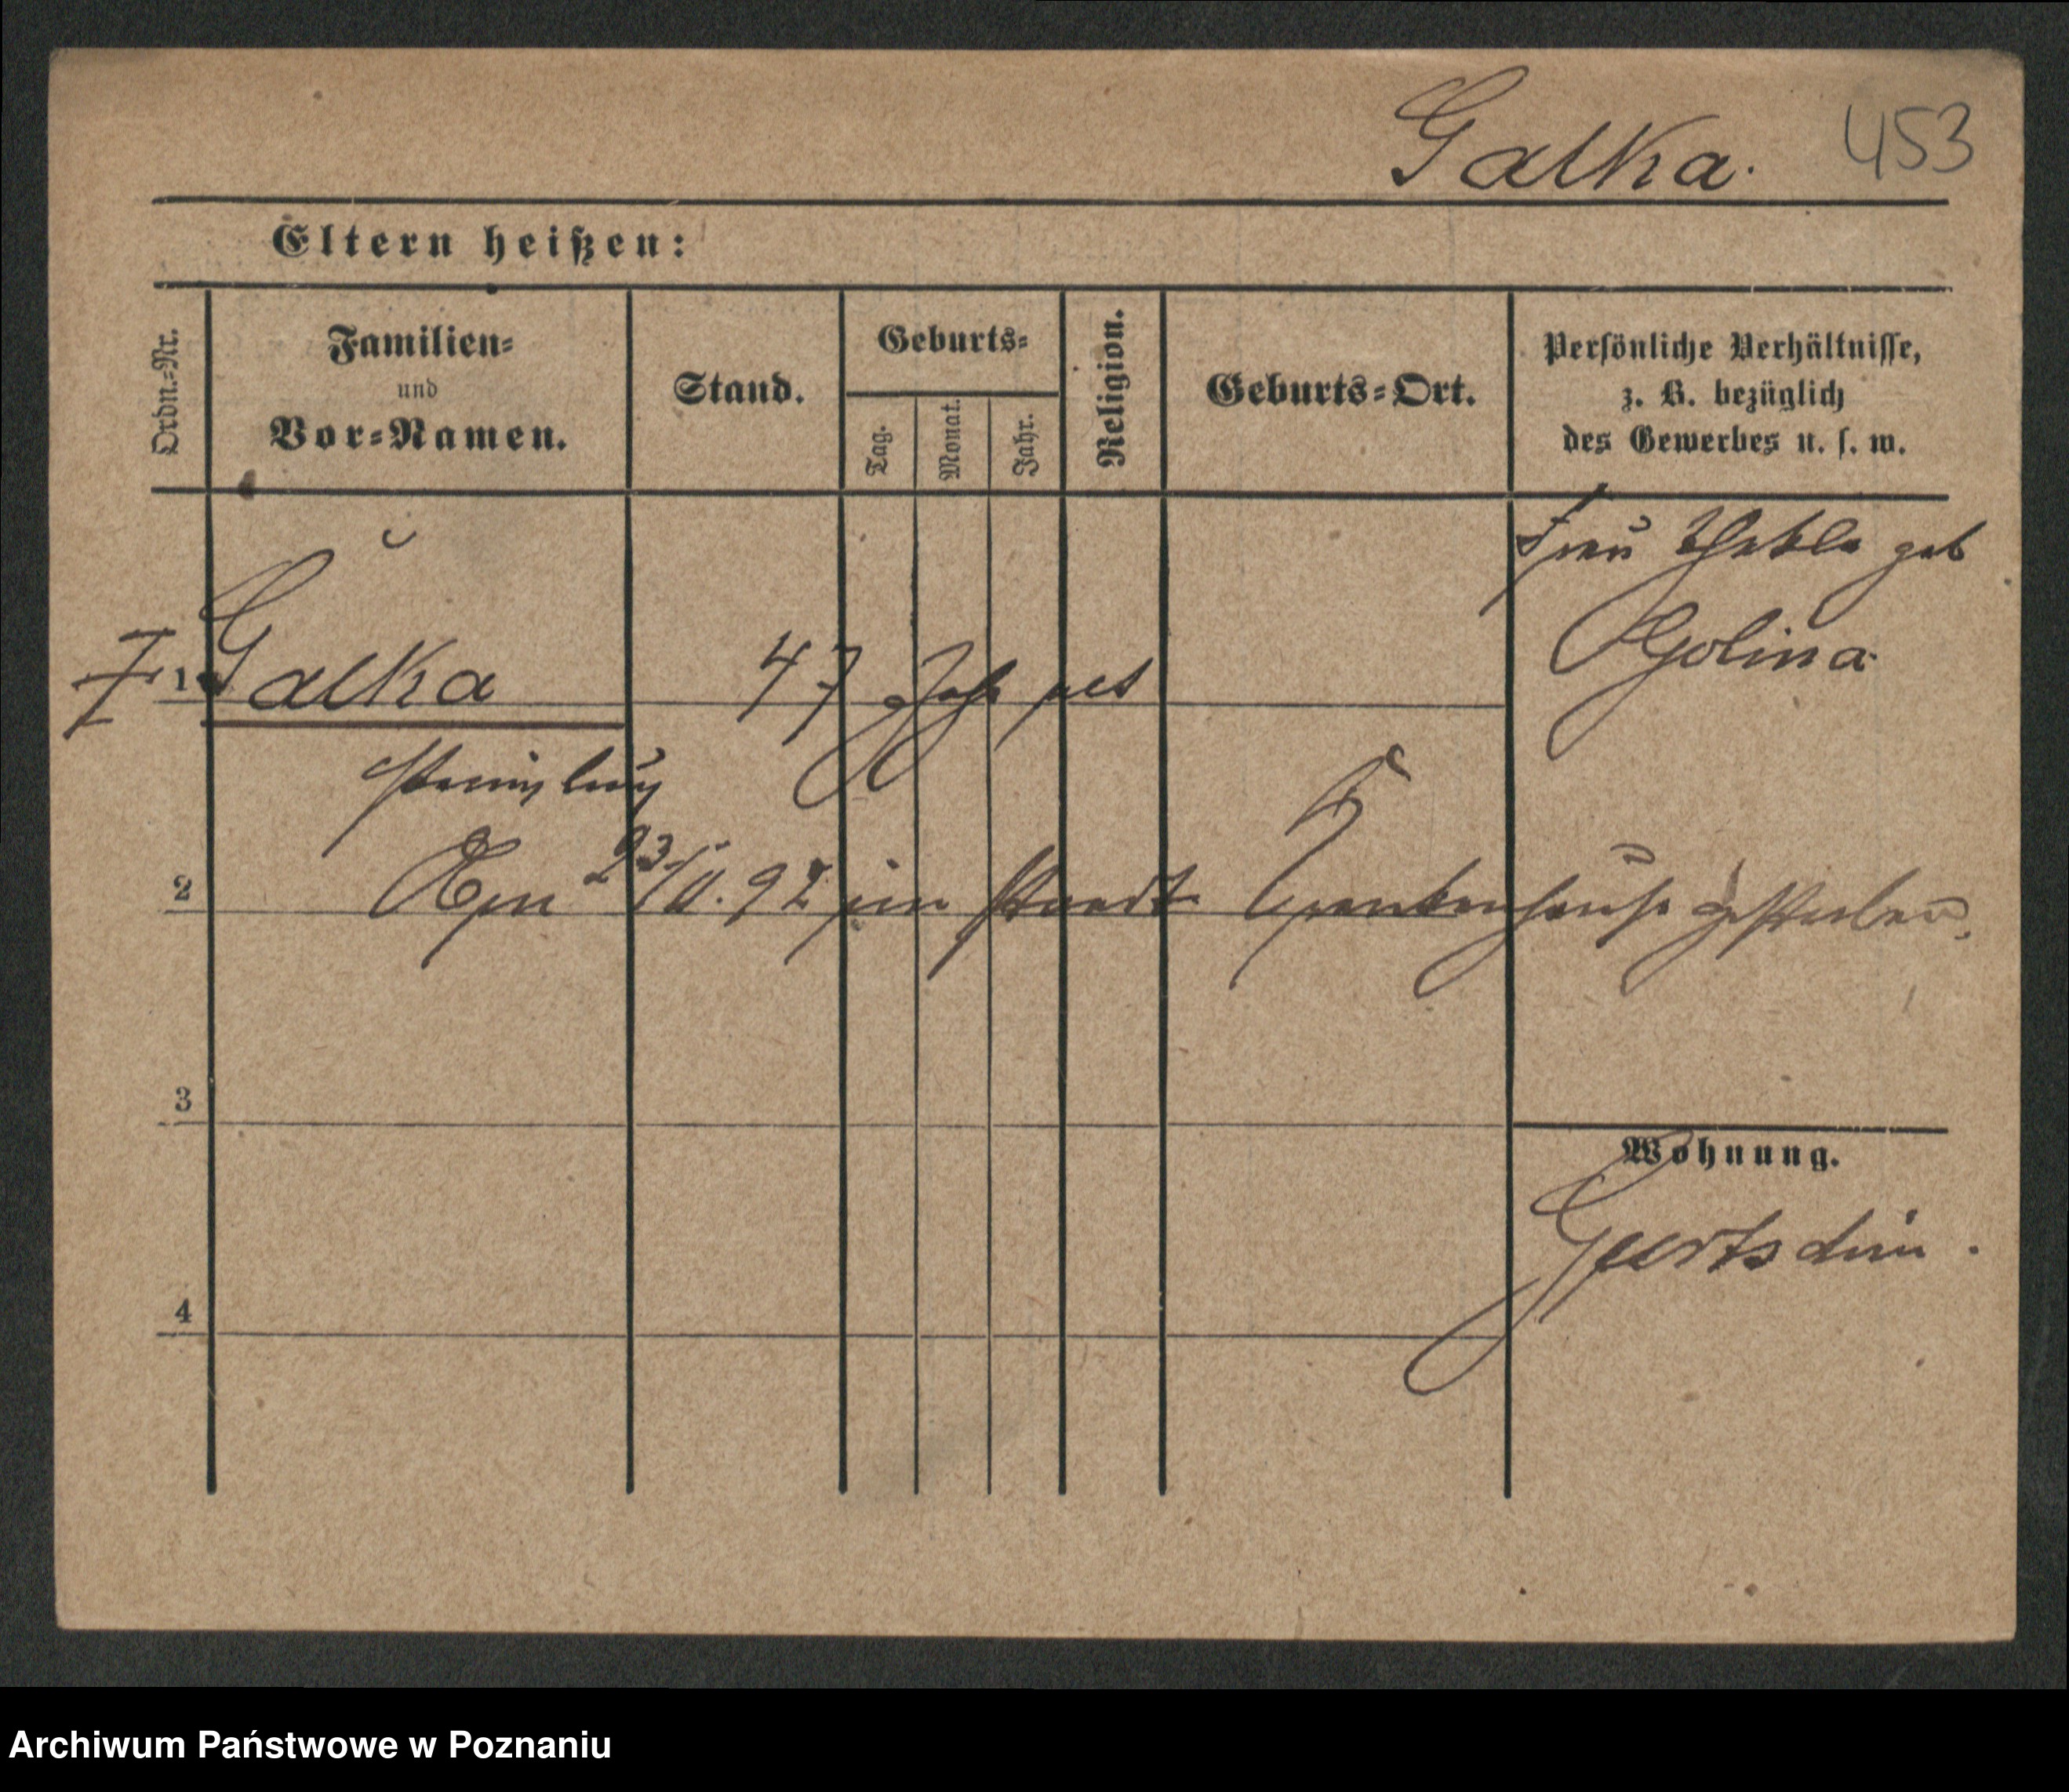 Galka. 453
Eltern heißen:
Ordn.-Nr.
Familien-
und
Vor-Namen.
Stand.
Geburts-
Tag.
Monat.
Jahr.
Religion.
Geburts-Ort.
Persönliche Verhältnisse,
z. B. bezüglich
des Gewerbes u. s. w.
Frau Thekla geb
Golina
1 Galka 47 Jahr alt
2 Am 23/11. 92 im Stadt Krankenhause gestorben.
3
Wohnung.
4
Archiwum Państwowe w Poznaniu